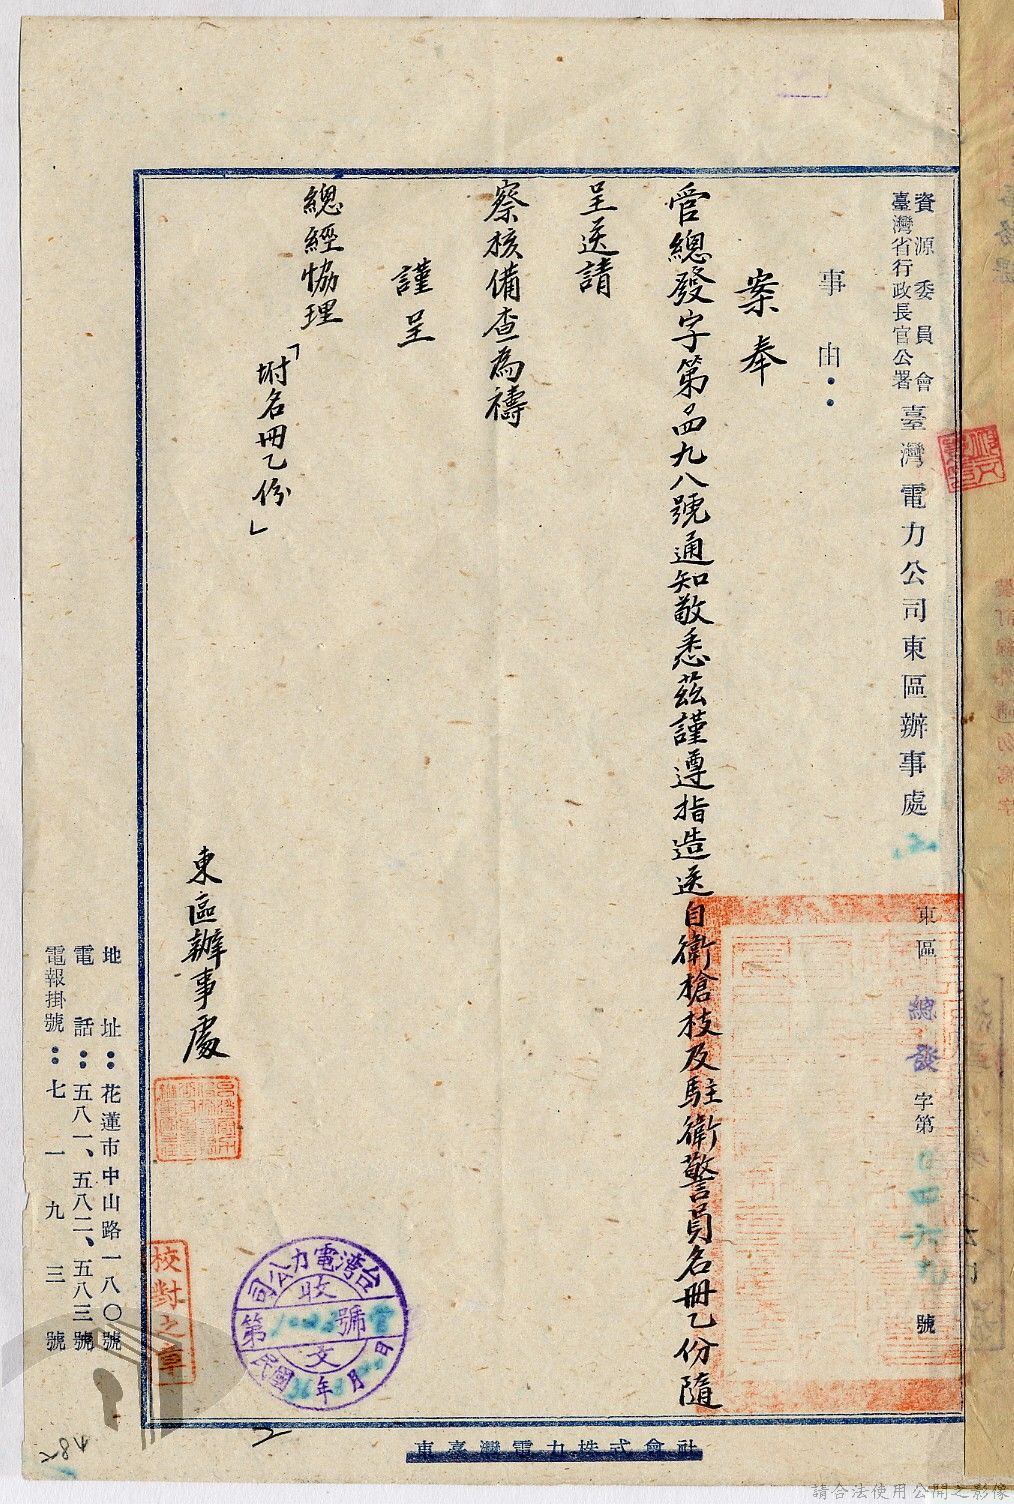 資源委員會
臺灣省行政長官公署
臺灣電力公司東區辦事處
東區總發字第四六九號
事由：
案奉
管總發字第四九八號通知敬悉茲謹遵指造送自衛槍枝及駐衛警員名冊乙份隨
呈送請
察核備查為禱
謹呈
總經協理
「坿名冊乙份」
東區辦事處
校對之章
台湾電力公司
收文
第 號
民國36年 月 日
地址：花蓮市中山路一八〇號
電話：五八一、五八二、五八三號
電報掛號：七一九三號
東臺灣電力株式會社
請合法使用公開之影像